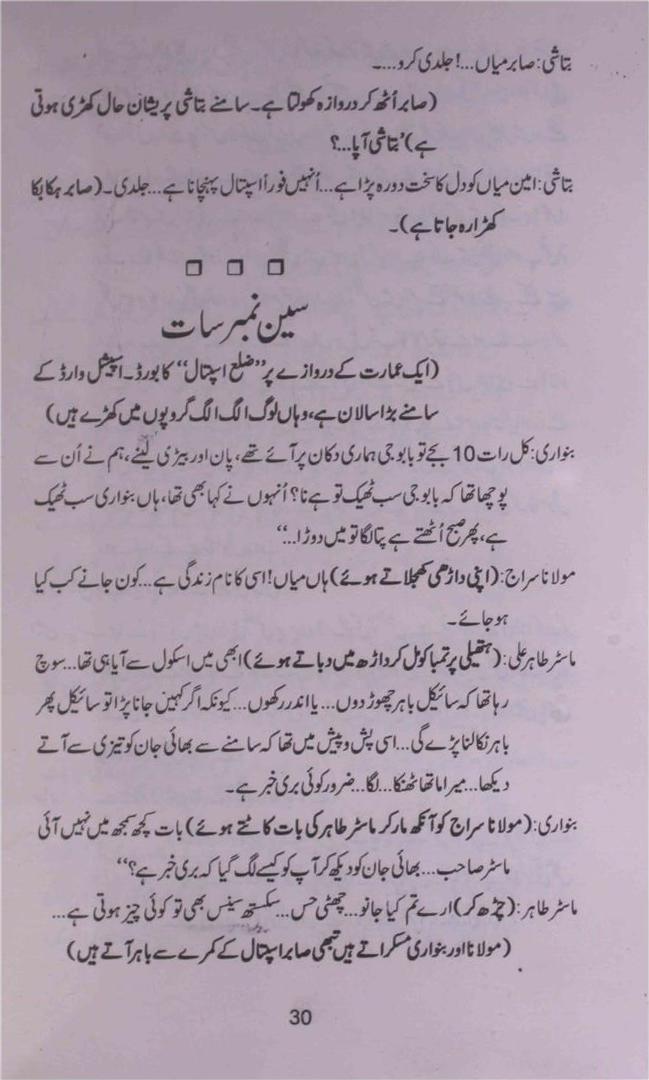 بتاشی: صابر میاں...! جلدی کرو...۔
(صابر اُٹھ کر دروازہ کھولتا ہے۔ سامنے بتاشی پریشان حال کھڑی ہوتی
ہے) ’بتاشی آپا...؟
بتاشی: امین میاں کو دل کا سخت دورہ پڑا ہے... اُنہیں فوراً اسپتال پہنچانا ہے... جلدی۔ (صابر ہکا بکا
کھڑا رہ جاتا ہے)۔
سین نمبر سات
(ایک عمارت کے دروازے پر ’’ضلع اسپتال‘‘ کا بورڈ۔ اسپیشل وارڈ کے
سامنے بڑا سا لان ہے، وہاں لوگ الگ الگ گروپوں میں کھڑے ہیں)
بنواری: کل رات 10 بجے تو بابو جی ہماری دکان پر آئے تھے، پان اور بیڑی لینے، ہم نے اُن سے
پوچھا تھا کہ بابو جی سب ٹھیک تو ہے نا؟ اُنہوں نے کہا بھی تھا، ہاں بنواری سب ٹھیک
ہے، پھر صبح اُٹھتے ہے پتا لگا تو میں دوڑا...‘‘
مولانا سراج: (اپنی داڑھی کھجلاتے ہوئے) ہاں میاں! اسی کا نام زندگی ہے... کون جانے کب کیا
ہو جائے۔
ماسٹر طاہر علی: (ہتھیلی پر تمباکو مل کر داڑھ میں دباتے ہوئے) ابھی میں اسکول سے آیا ہی تھا... سوچ
رہا تھا کہ سائیکل باہر چھوڑ دوں... یا اندر رکھوں... کیونکہ اگر کہیں جانا پڑا تو سائیکل پھر
باہر نکالنا پڑے گی... اسی پش و پیش میں تھا کہ سامنے سے بھائی جان کو تیزی سے آتے
دیکھا... میرا ماتھا ٹھنکا... لگا... ضرور کوئی بری خبر ہے۔
بنواری: (مولانا سراج کو آنکھ مار کر ماسٹر طاہر کی بات کاٹتے ہوئے) بات کچھ سمجھ میں نہیں آئی
ماسٹر صاحب... بھائی جان کو دیکھ کر آپ کو کیسے لگ گیا کہ بری خبر ہے؟‘‘
ماسٹر طاہر: (چڑھ کر) ارے تم کیا جانو... چھٹی حس... سکستھ سینس بھی تو کوئی چیز ہوتی ہے...
(مولانا اور بنواری مسکراتے ہیں تبھی صابر اسپتال کے کمرے سے باہر آتے ہیں)
30